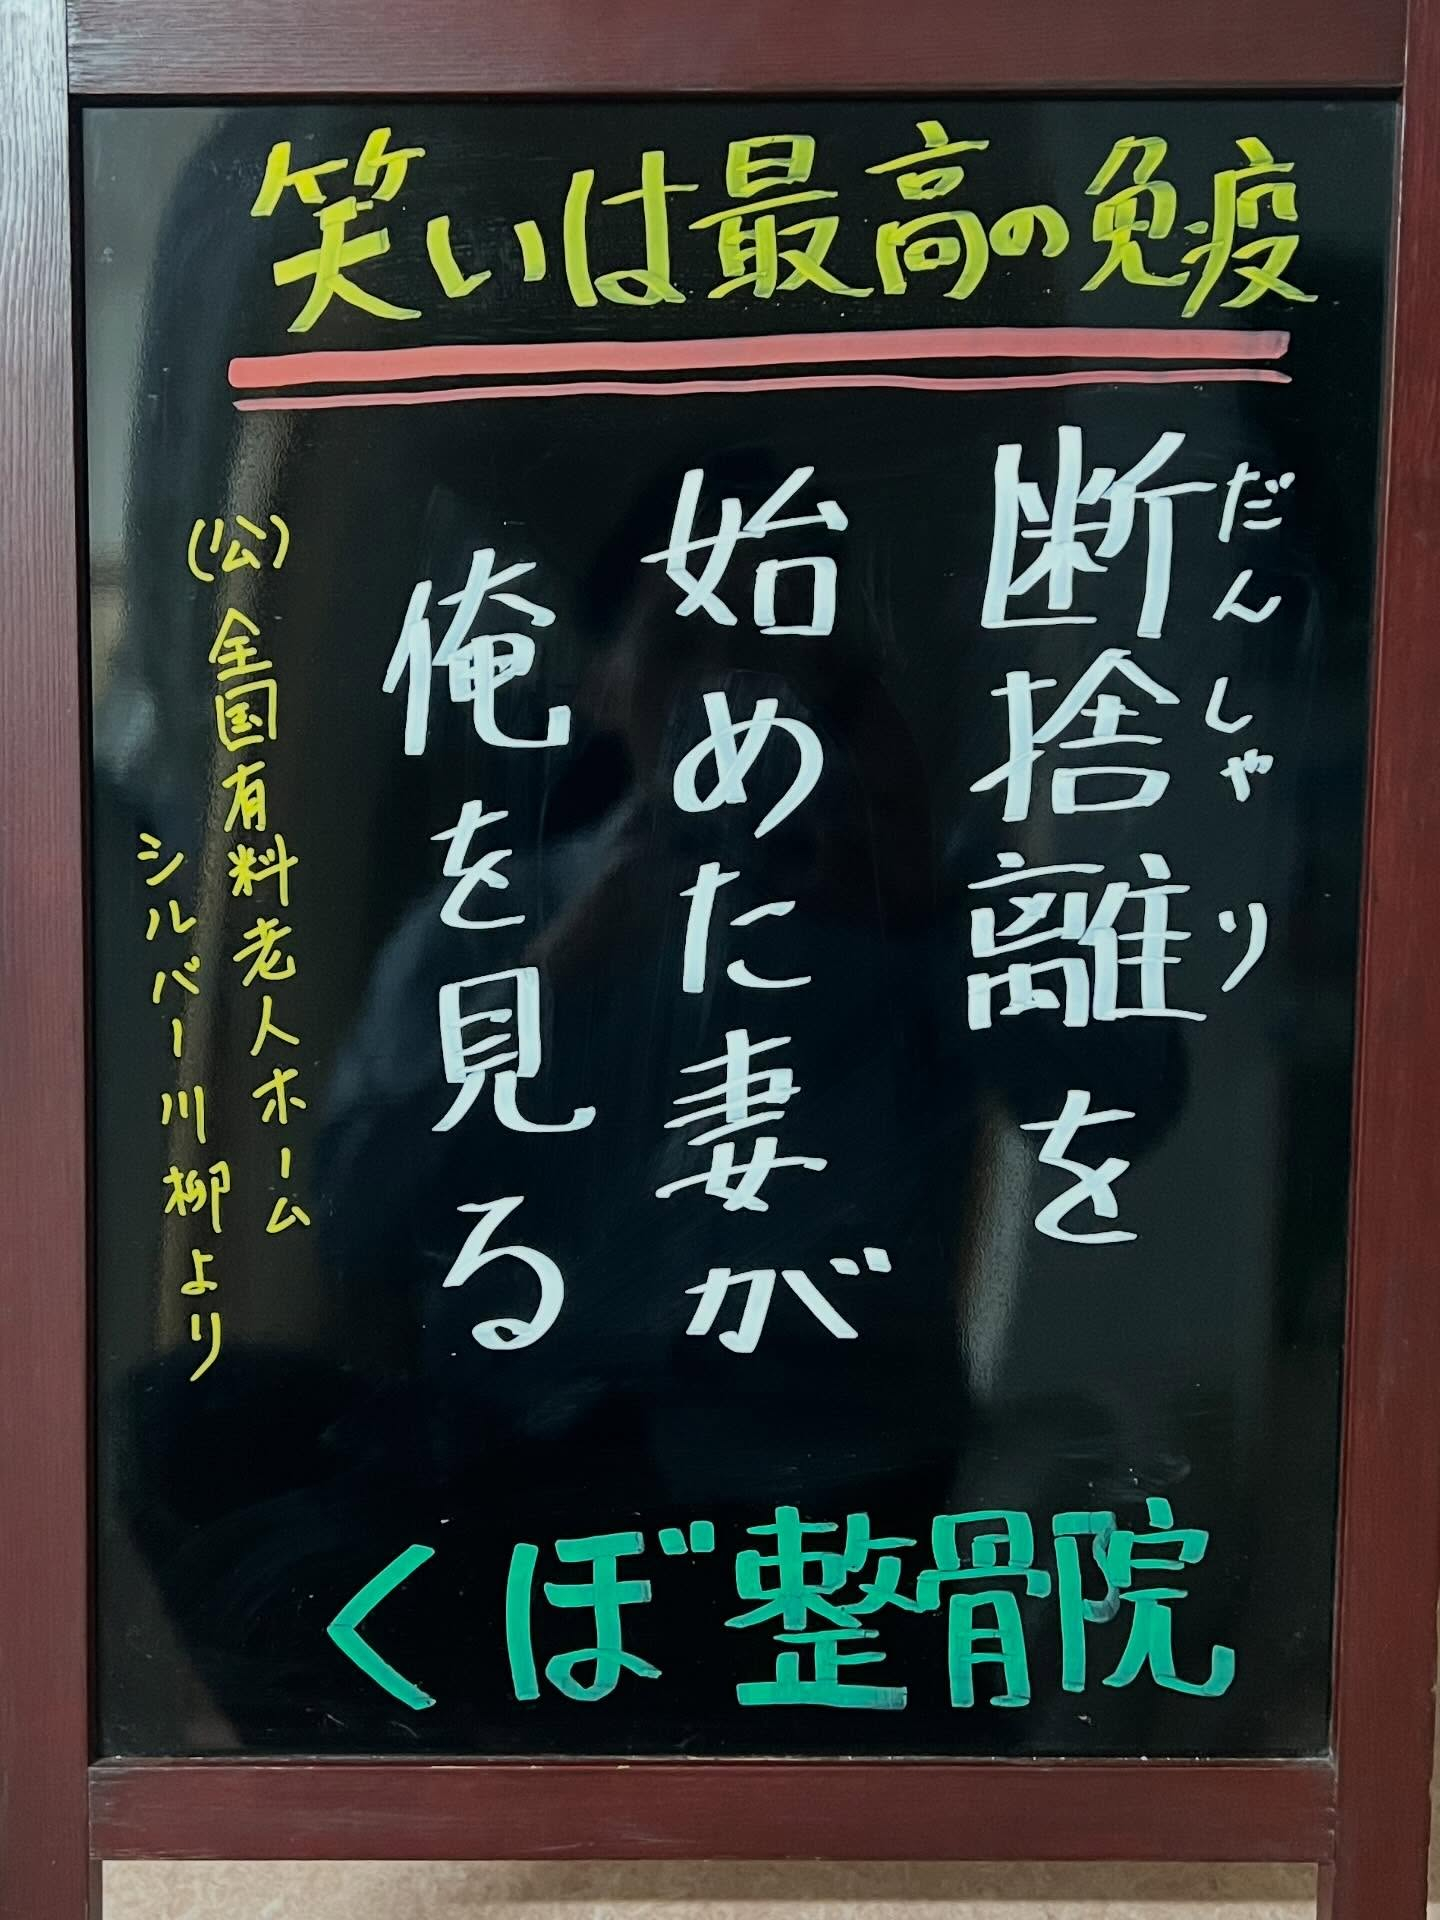 笑いは最高の免疫
断捨離を
だんしゃり
始めた妻が
俺を見る
(公)全国有料老人ホーム
シルバー川柳より
くぼ整骨院